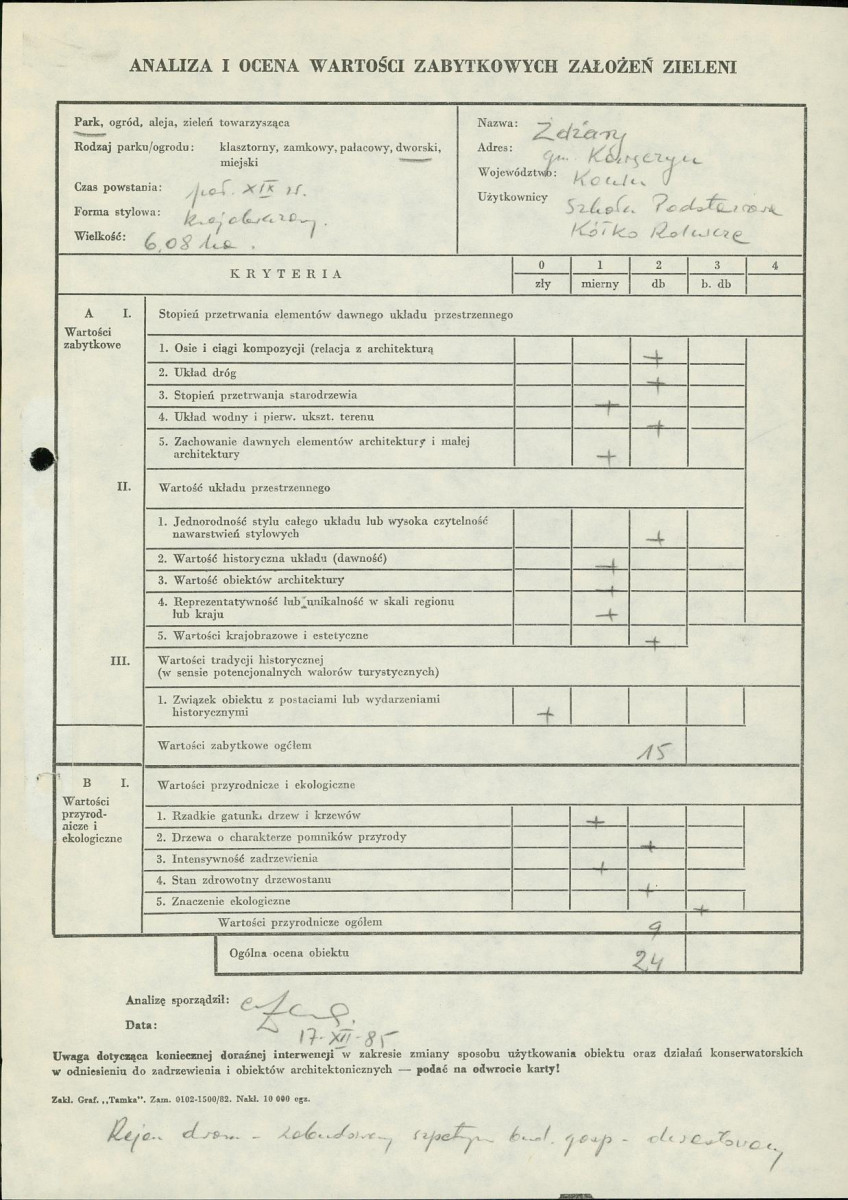 ANALIZA I OCENA WARTOŚCI ZABYTKOWYCH ZAŁOŻEŃ ZIELENI
Park, ogród, aleja, zieleń towarzysząca
Rodzaj parku/ogrodu: klasztorny, zamkowy, pałacowy, dworski,
miejski
Czas powstania: poł. XIX w.
Forma stylowa: krajobrazowy.
Wielkość: 6,08 ha.
Nazwa: Żdżary
Adres: gm.
Województwo: Konin
Użytkownicy Szkoła Podstawowa
Kółko Rolnicze
KRYTERIA
0 1 2 3 4
zły mierny db b. db
A I. Stopień przetrwania elementów dawnego układu przestrzennego
Wartości
zabytkowe
1. Osie i ciągi kompozycji (relacja z architekturą +
2. Układ dróg +
3. Stopień przetrwania starodrzewia +
4. Układ wodny i pierw. ukszt. terenu +
5. Zachowanie dawnych elementów architektury i małej
architektury +
II. Wartość układu przestrzennego
1. Jednorodność stylu całego układu lub wysoka czytelność
nawarstwień stylowych +
2. Wartość historyczna układu (dawność) +
3. Wartość obiektów architektury +
4. Reprezentatywność lub unikalność w skali regionu
lub kraju +
5. Wartości krajobrazowe i estetyczne +
III. Wartości tradycji historycznej
(w sensie potencjonalnych walorów turystycznych)
1. Związek obiektu z postaciami lub wydarzeniami
historycznymi +
Wartości zabytkowe ogółem 15
B I. Wartości przyrodnicze i ekologiczne
Wartości
przyrod-
nicze i
ekologiczne
1. Rzadkie gatunki drzew i krzewów +
2. Drzewa o charakterze pomników przyrody +
3. Intensywność zadrzewienia +
4. Stan zdrowotny drzewostanu +
5. Znaczenie ekologiczne +
Wartości przyrodnicze ogółem 9
Ogólna ocena obiektu 24
Analizę sporządził:
Data: 17-XII-85
Uwaga dotycząca koniecznej doraźnej interwencji w zakresie zmiany sposobu użytkowania obiektu oraz działań konserwatorskich
w odniesieniu do zadrzewienia i obiektów architektonicznych — podać na odwrocie karty!
Zakł. Graf. „Tamka". Zam. 0102-1500/82. Nakł. 10 000 egz.
Rejon dworu - zabudowany szpetnym bud. gosp - dewastowany